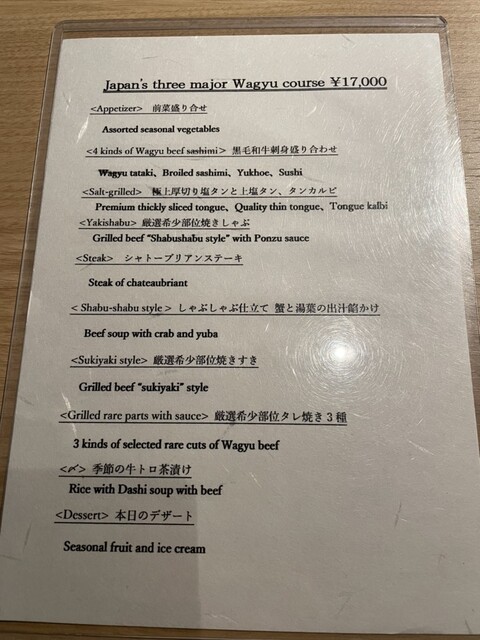 Japan's three major Wagyu course ¥17,000
<Appetizer> 前菜盛り合せ
Assorted seasonal vegetables
<4 kinds of Wagyu beef sashimi> 黒毛和牛刺身盛り合わせ
Wagyu tataki、Broiled sashimi、Yukhoe、Sushi
<Salt-grilled> 極上厚切り塩タンと上塩タン、タンカルビ
Premium thickly sliced tongue、Quality thin tongue、Tongue kalbi
<Yakishabu> 厳選希少部位焼きしゃぶ
Grilled beef "Shabushabu style" with Ponzu sauce
<Steak> シャトーブリアンステーキ
Steak of chateaubriant
< Shabu-shabu style > しゃぶしゃぶ仕立て 蟹と湯葉の出汁餡かけ
Beef soup with crab and yuba
<Sukiyaki style> 厳選希少部位焼きすき
Grilled beef "sukiyaki" style
<Grilled rare parts with sauce> 厳選希少部位タレ焼き3種
3 kinds of selected rare cuts of Wagyu beef
<〆> 季節の牛トロ茶漬け
Rice with Dashi soup with beef
<Dessert> 本日のデザート
Seasonal fruit and ice cream